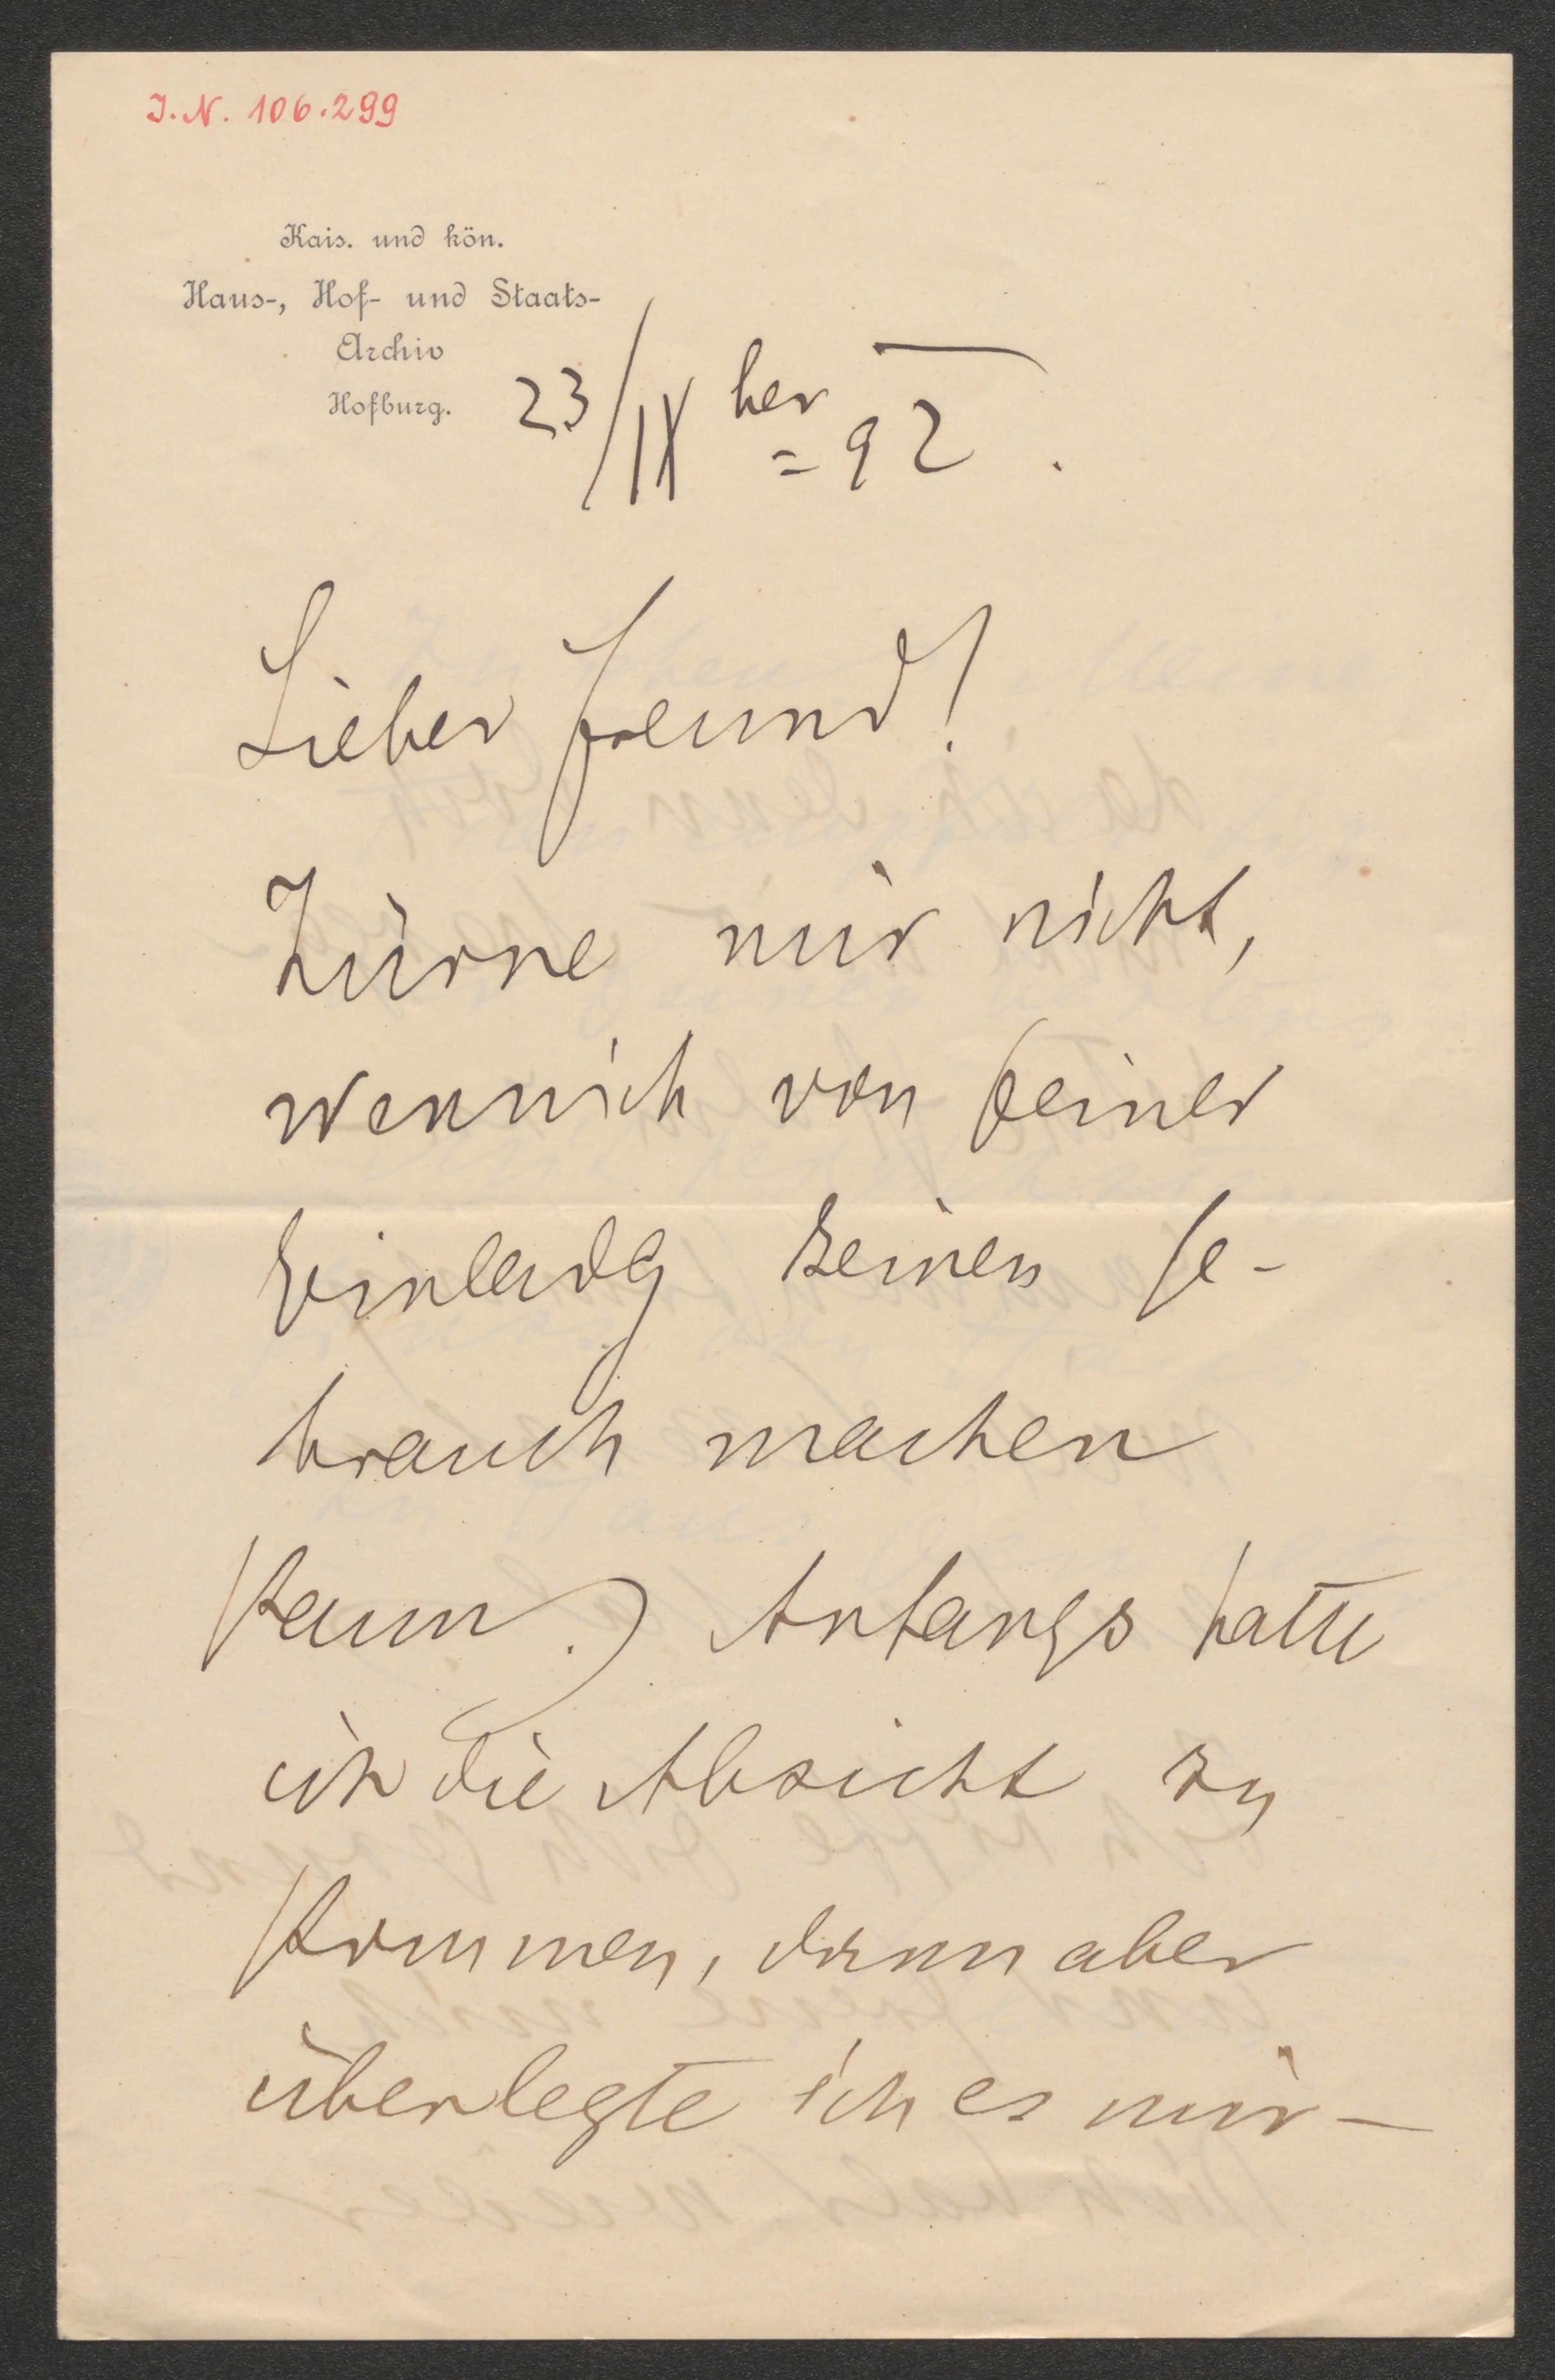 I. N. 106.299
Kais. und kön.
Haus-, Hof- und Staats-
Archiv
Hofburg.
23/IX ber = 92.
Lieber Freund!
Zürne mir nicht,
wenn ich von Deiner
Einladg keinen Ge-
brauch machen
kann. Anfangs hatte
ich die Absicht zu
kommen, dann aber
überlegte ich es mir –